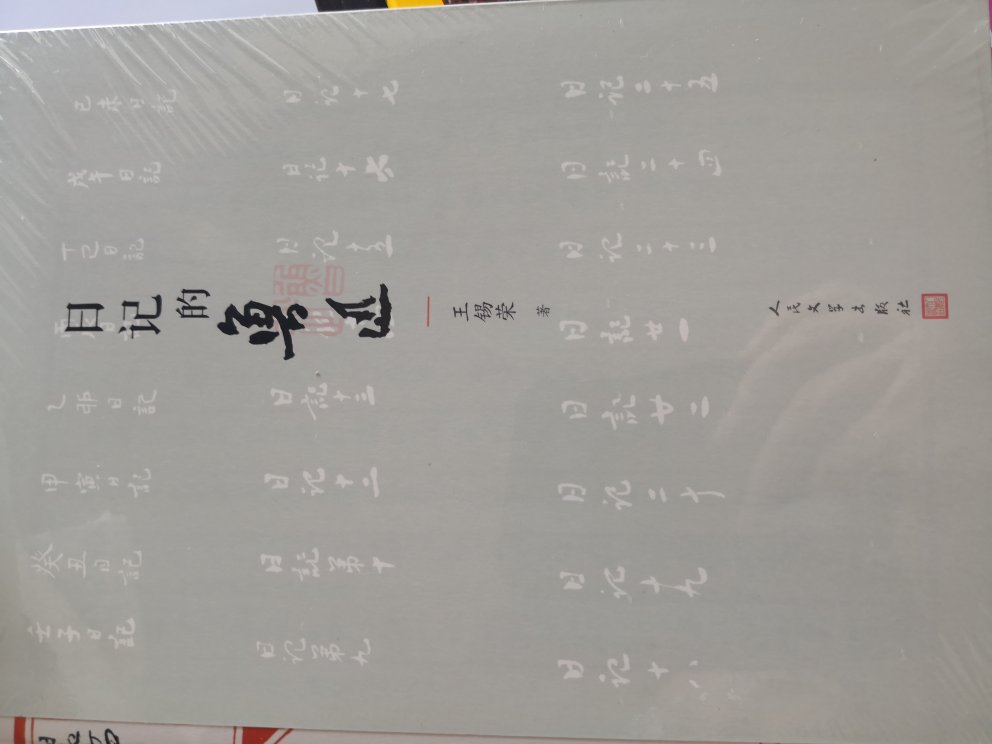 日记的鲁迅
王锡荣 著
人民文学出版社
壬子日記
癸丑日記
甲寅日記
乙卯日記
丁巳日記
戊午日記
己未日記
日记第九
日記第十
日记十二
日記十三
日记十五
日记十六
日记十七
日记十八
日记十九
日记二十
日記廿二
日記廿一
日记二十三
日記二十四
日记二十五